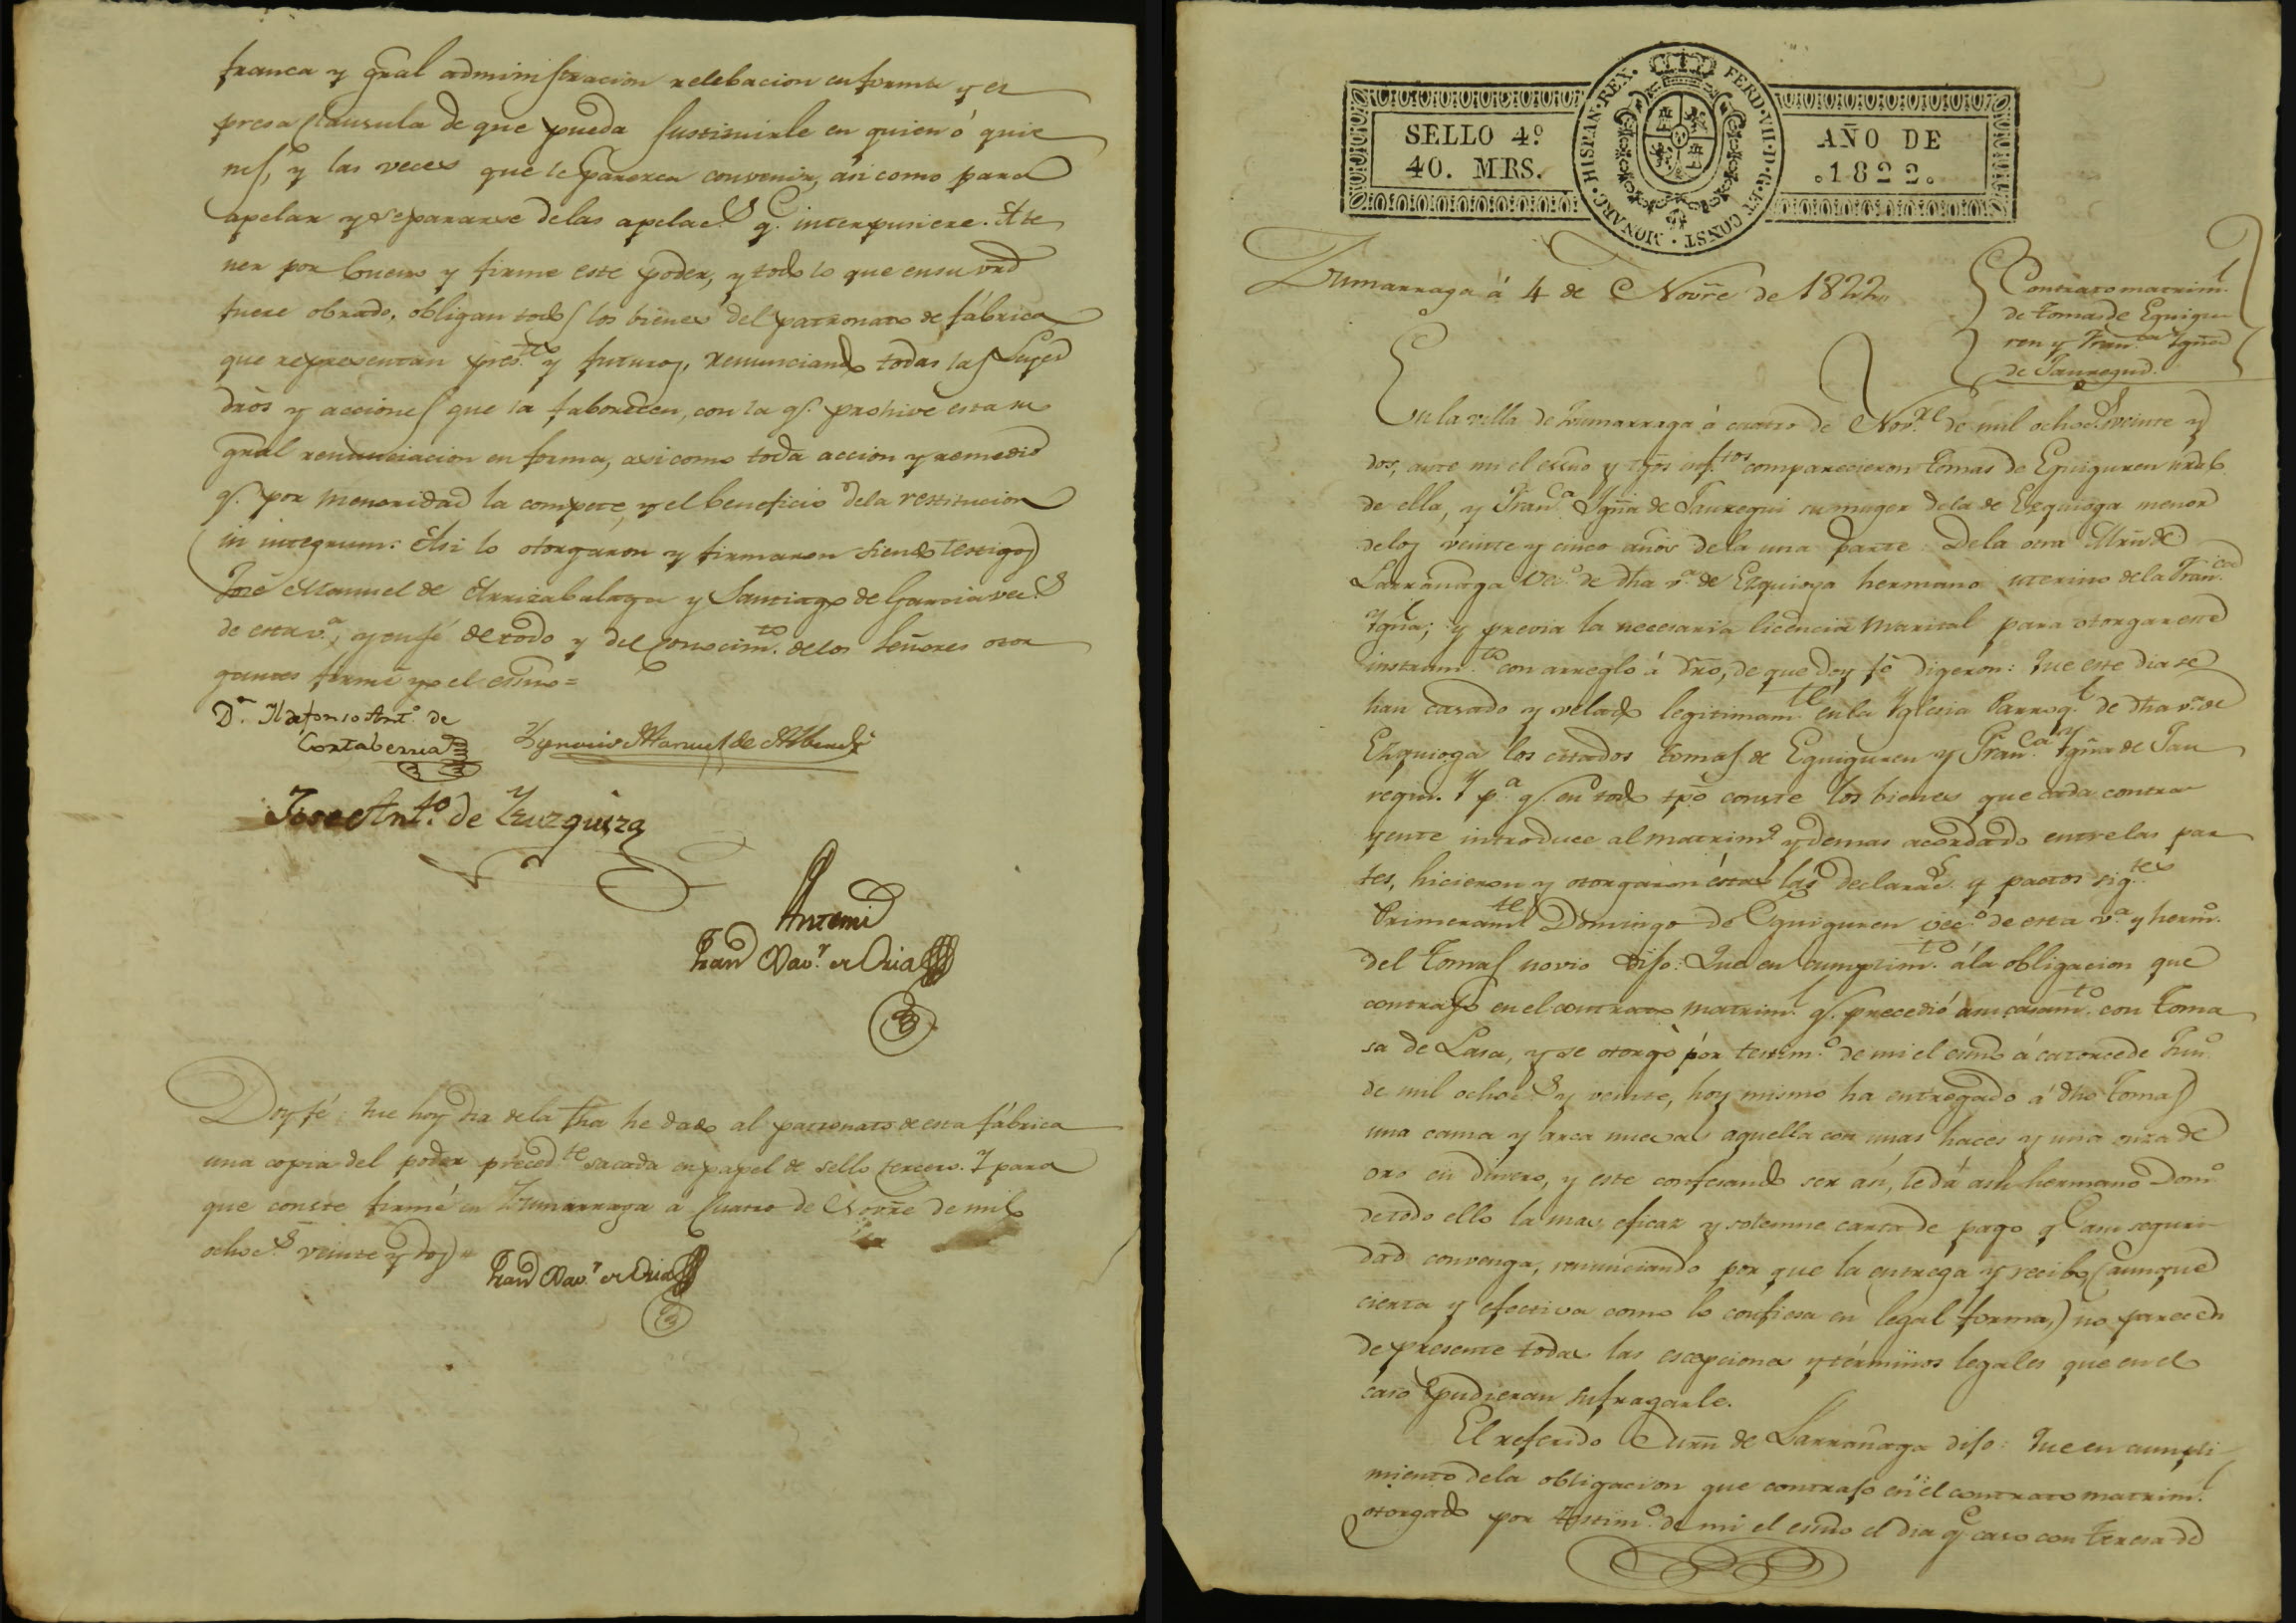 franca y gral administracion relebacion en forma y es
presa clausula de que pueda sustituirle en quien ó quie
nes, y las veces que le paresca convenir, asi como para
apelar y separarse delas apelac.s q.e interpusiere. A te
ner por bueno y firme este poder, y todo lo que en su vrd
fuere obrado, obligan todos los bienes del patronato de fábrica
que representan pres.tes y futuros, renunciando todas las Leyes
dròs y acciones que la faborecen, con la q.e prohive esta
gral renunciacion en forma, asi como toda accion y remedio
q.e por menoridad la compete, y el beneficio dela restitucion
in integrum: Asi lo otorgaron y firmaron siendo testigos
José Manuel de Arrizabalaga y Santiago de Garcia vec.s
de esta v.a, y en fé de todo y del conocim.to delos Señores otor
gantes firmé yo el essno=
D.n Ildefonso Ant.o de
Cortaberria
Ygnacio Manuel de Alberdi
Jose Ant.o de Yzuzquiza
Antemi
Doy fé: Que hoy dia dela fha he dado al patronato de esta fábrica
una copia del poder preced.te sacada en papel de sello tercero. Y para
que conste firmé en Zumarraga a Cuatro de Novre de mil
ochoc.s veinte y dos=
SELLO 4º
40. MRS.
FERD·VII·D·G·ET CONST·MONARC·HISPAN·REX.
AÑO DE
.1822.
Zumarraga á 4 de Novre de 1822
Contrato matrim.l
de Tomas de Eguigu
ren y Fran.ca Ygña
de Jauregui.
En la villa de Zumarraga á cuatro de Nov.re de mil ochoc.s veinte y
dos, ante mi el essno y tgõs inf.tos comparecieron Tomas de Eguiguren nrāl
de ella, y Fran.ca Ygña de Jauregui su muger dela de Ezquioga menor
delos veinte y cinco años dela una parte: Dela otra Mrñ de
Larrañaga vec.o de dha v.a de Ezquioga hermano uterino dela Fran.ca
Ygña; y previa la necesaria licencia marital para otorgar este
instrum.to con arreglo á dro, de que doy fé digeron: Que este dia se
han casado y velado legitimam.te en la Yglesia Parroq.l de dha v.a de
Ezquioga los citados Tomas de Eguiguren y Fran.ca Ygña de Jau
regui. Y p.a q.e en todo tpõ conste los bienes que cada contra
yente introduce al matrim.o y demas acordado entre las par
tes, hicieron y otorgaron estas las declarac.s y pactos sig.tes
Primeram.te Domingo de Eguiguren vec.o de esta v.a y herm.o
del Tomas novio dijo: Que en cumplim.to á la obligacion que
contrajo en el contrato matrim.l q.e precedió á su casam.to con Toma
sa de Lasa, y se otorgó por testim.o de mi el essno á catorce de
de mil ochoc.s y veinte, hoy mismo ha entregado á dho Tomas
una cama y arca nuevas aquella con unas haces y una onza de
oro en dinero, y este confesando ser asi, le dá a su hermano Dom.o
de todo ello la mas eficaz y solemne carta de pago q.e a su seguri
dad convenga, renunciando por que la entrega y recibo (aunque
cierta y efectiva como lo confiesa en legal forma,) no parecen
de presente todas las escepciones y términos legales que en el
caso pudieran sufragarle.
El referido Mrñ de Larrañaga dijo: Que en cumpli
miento dela obligacion que contrajo en el contrato matrim.l
otorgado por testim.o de mi el essno el dia q.e caso con Teresa de